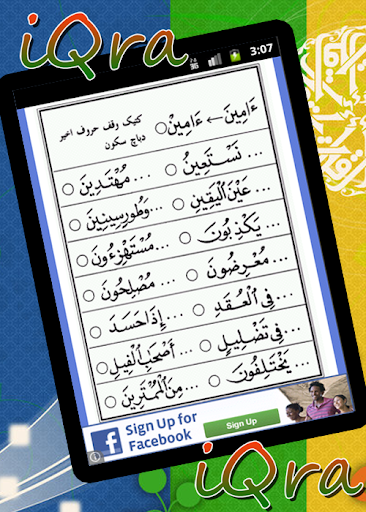 iQra
3:07
ءَامِينَ ← ءَامِيْنْ ○
كتيک وقف حروف اخير
دباچ سكون
... نَسْتَعِينُ ○ ... مُهْتَدِينَ ○
... عَيْنَ الْيَقِينِ ○ ... وَطُورِسِينِينَ ○
... يَكْذِبُونَ ○ ... مُسْتَهْزِءُونَ ○
... مُعْرِضُونَ ○ ... مُصْلِحُونَ ○
... فِي الْعُقَدِ ○ ... إِذَا حَسَدَ ○
... فِي تَضْلِيلٍ ○ ... أَصْحَٰبِ الْفِيلِ ○
... يَخْتَلِفُونَ ○ ... مِنَ الْمُمْتَرِينَ ○
Sign Up for
Facebook
Sign Up
iQra